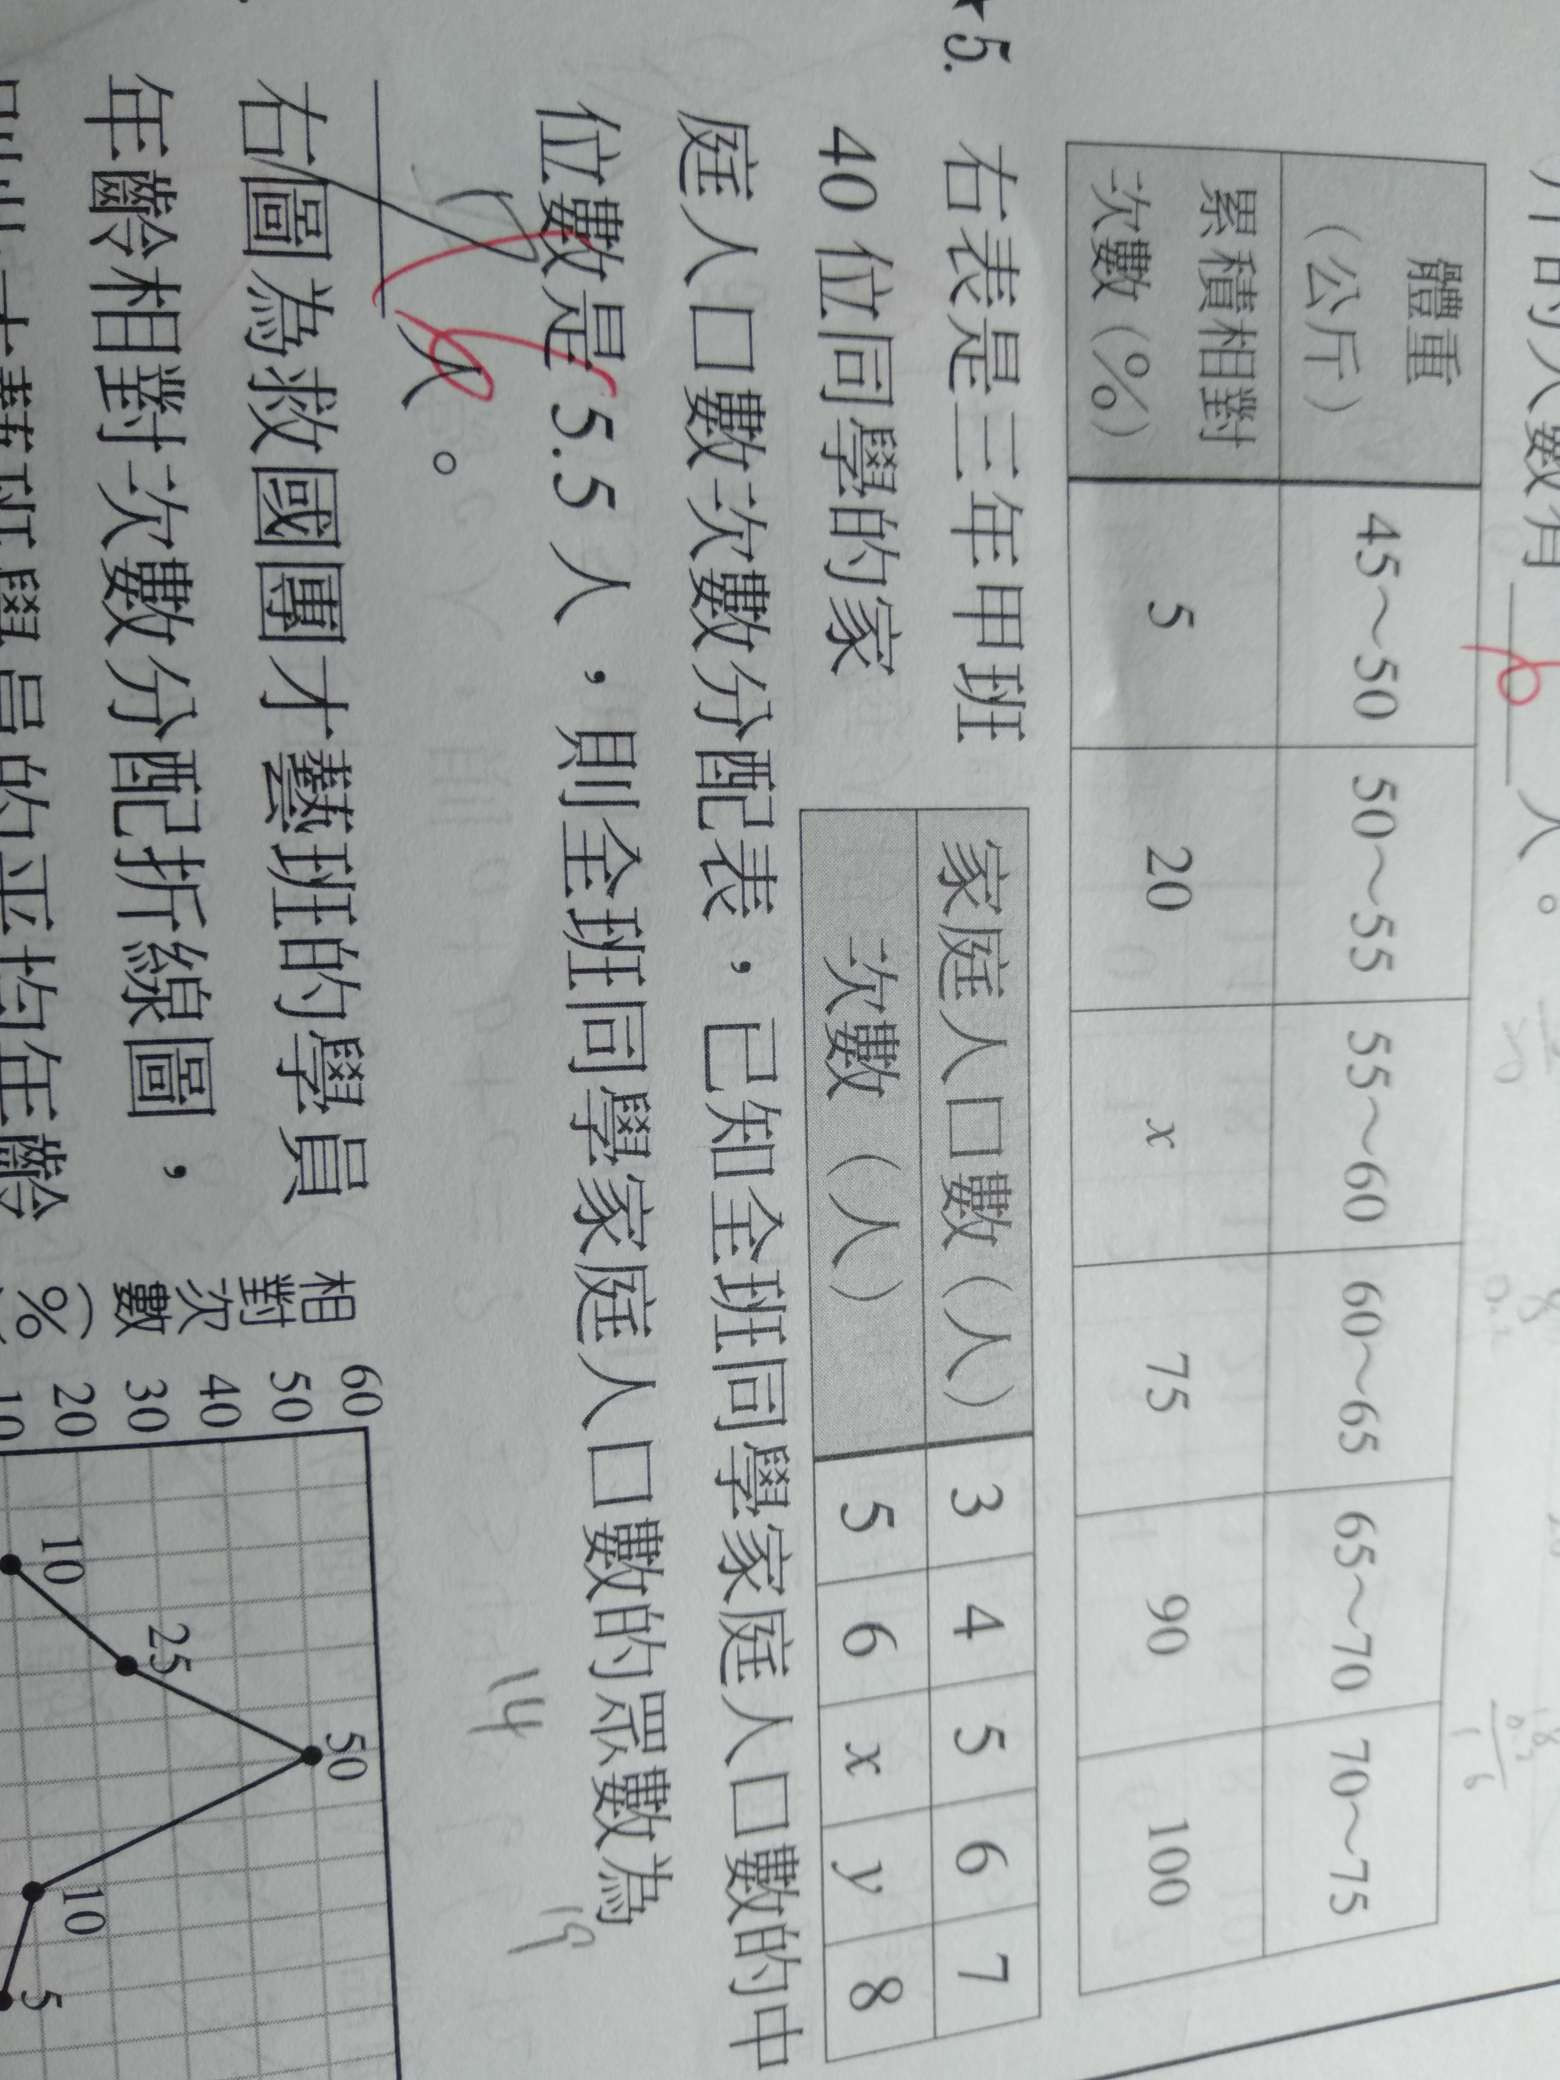 斤的人數有 6 人。
體重
(公斤) 45～50 50～55 55～60 60～65 65～70 70～75
累積相對
次數(%) 5 20 x 75 90 100
★5. 右表是三年甲班
40 位同學的家
家庭人口數(人) 3 4 5 6 7
次數(人) 5 6 x y 8
庭人口數次數分配表，已知全班同學家庭人口數的中
位數是 5.5 人，則全班同學家庭人口數的眾數為
6 人。
14
19
右圖為救國團才藝班的學員
年齡相對次數分配折線圖，
相對次數(%)
60
50
40
30
20
10
10
25
50
10
5